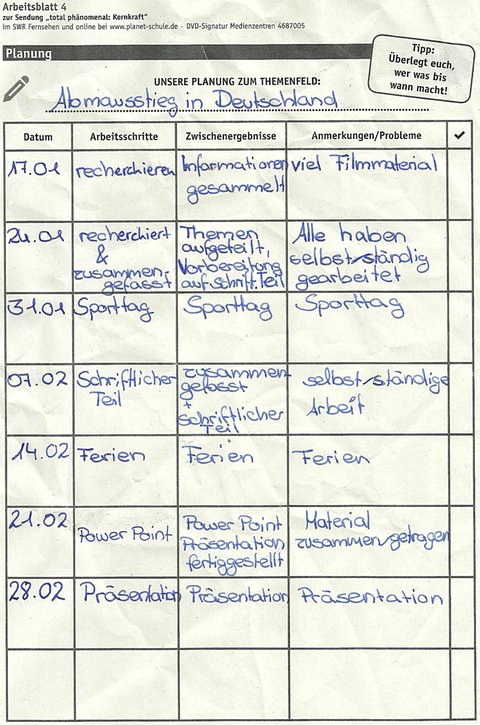 Arbeitsblatt 4
zur Sendung „total phänomenal: Kernkraft"
im SWR Fernsehen und online bei www.planet-schule.de · DVD-Signatur Medienzentren 4687005
Planung
Tipp:
Überlegt euch,
wer was bis
wann macht!
UNSERE PLANUNG ZUM THEMENFELD:
Atomausstieg in Deutschland
Datum Arbeitsschritte Zwischenergebnisse Anmerkungen/Probleme ✔
17.01 recherchieren Informationen gesammelt viel Filmmaterial
24.01 recherchiert & zusammengefasst Themen aufgeteilt, Vorbereitung auf Schrift. Teil Alle haben selbst/ständig gearbeitet
31.01 Sporttag Sporttag Sporttag
07.02 Schriftlicher Teil zusammengefasst + schriftlicher Teil selbst/ständige Arbeit
14.02 Ferien Ferien Ferien
21.02 Power Point Power Point Präsentation fertiggestellt Material zusammen/getragen
28.02 Präsentation Präsentation Präsentation